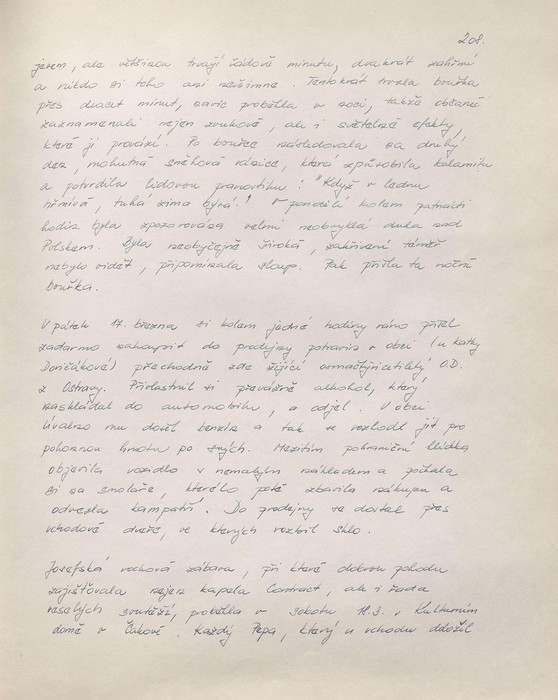 208.
jevem, ale většinou trvají řádově minutu, dvakrát zahřmí
a nikdo si toho ani nevšimne. Tentokrát trvala bouřka
přes dvacet minut, navíc proběhla v noci, takže občané
zaznamenali nejen zvukové, ale i světelné efekty,
které ji provází. Po bouřce následovala na druhý
den, mohutná sněhová vánice, která způsobila kalamitu
a potvrdila lidovou pranostiku: "Když v lednu
hřmívá, tuhá zima bývá." V pondělí kolem patnácti
hodin byla zpozorována velmi neobvyklá duha nad
Polskem. Byla neobyčejně široká, zakřivení téměř
nebylo vidět, připomínala sloup. Pak přišla ta noční
bouřka.
V pátek 17. března si kolem jedné hodiny ráno přišel
zadarmo nakoupit do prodejny potravin v obci (u Katky
) přechodně zde žijící osmačtyřicetiletý O.D.
z Ostravy. Přivlastnil si převážně alkohol, který
naskládal do automobilu, a odjel. V obci
Úvalno mu došel benzin a tak se rozhodl jít pro
pohonnou hmotu po svých. Mezitím pohraniční hlídka
objevila vozidlo s nemalým nákladem a počkala
si na smolaře, kterého poté zbavila nákupu a
odvezla kampatří. Do prodejny se dostal přes
vchodové dveře, ve kterých rozbil sklo.
Josefská rocková zábava, při které dobrou pohodu
zajišťovala nejen kapela Contract, ale i řada
veselých soutěží, proběhla v sobotu 18.3. v Kulturním
domě v Čakově. Každý Pepa, který u vchodu doložil